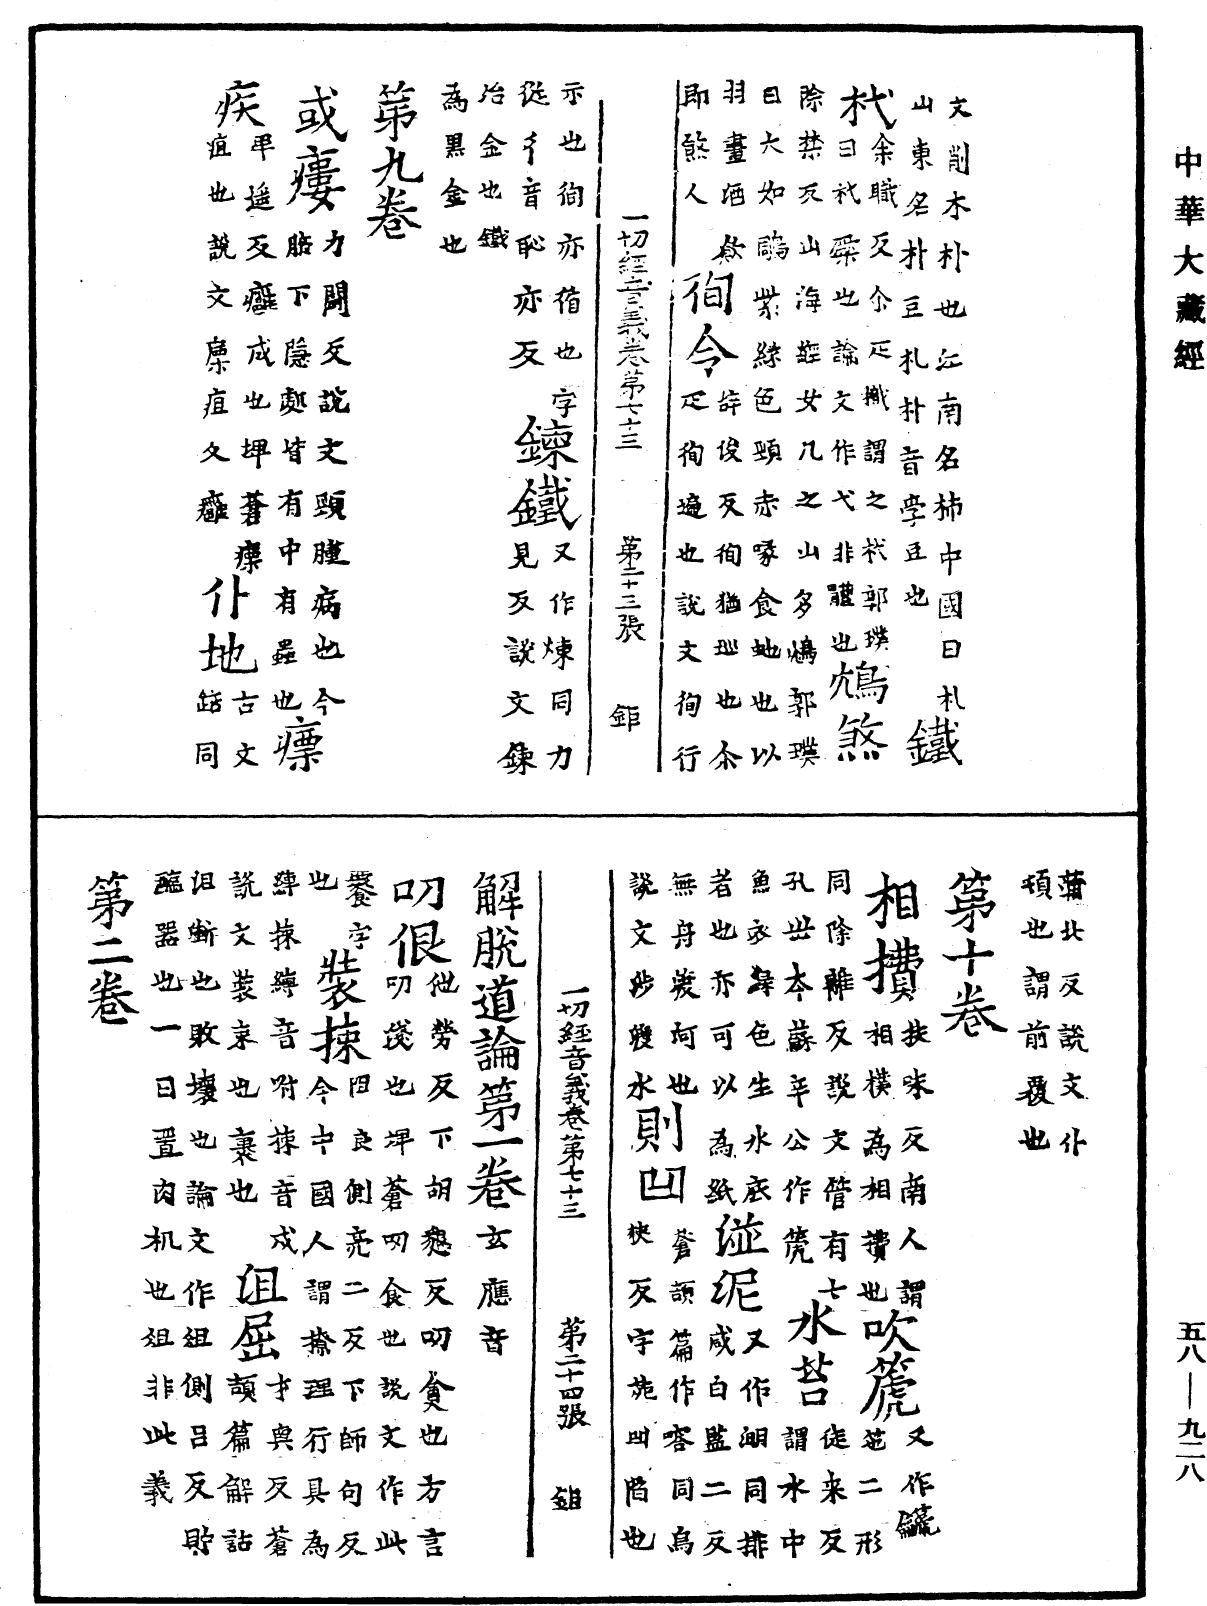 中華大藏經
文削木朴也江南名柿中國曰札
山東名朴豆札朴音學豆也 鐵
杙 余職反尒疋樴謂之杙郭璞
曰杙橜也論文作弋非體也 鴆煞
除禁反山海經女几之山多鴆郭璞
曰大如鵰紫綠色頸赤喙食虵也以
羽畫酒飲
即煞人 徇令 辝俊反徇猶巡也尒
疋徇遍也說文徇行
一切經音義卷第七十三 第二十三張 鉅
示也徇亦循也字
從彳音恥亦反 鍊鐵 又作煉同力
見反說文鍊
冶金也鐵
為黑金也
第九卷
或瘻 力鬪反說文頸腫病也今
䏶下隱處皆有中有蟲也 瘭
疾 卑遥反癰成也埤蒼瘭
疽也說文瘭疽久癰 仆地 古文
踣同
蒲北反說文仆
頓也謂前覆也
第十卷
相攢 扶味反南人謂
相橫為相攢也 吹箎 又作䶵
竾二形
同除離反說文管有七
孔世本蘇辛公作箎 水苔 徒來反
謂水中
魚衣綠色生水底
者也亦可以為紙 湴泥 又作湴同排
咸白監二反
無舟渡河也
說文涉渡水 則凹 蒼頡篇作容同烏
狹反字苑凹陷也
一切經音義卷第七十三 第二十四張 鉅
解脫道論第一卷 玄應音
叨佷 他勞反下胡懇反叨貪也方言
叨殘也埤蒼叨食也說文作此
饕字
也 裝揀 阻良側亮二反下師句反
今中國人謂撩理行具為
縴揀縛音附揀音戍
說文裝束也裹也 沮屈 才與反蒼
頡篇解詁
沮漸也敗壞也論文作俎側呂反貯
醢器也一曰置肉机也俎非此義
第二卷
五八—九二八